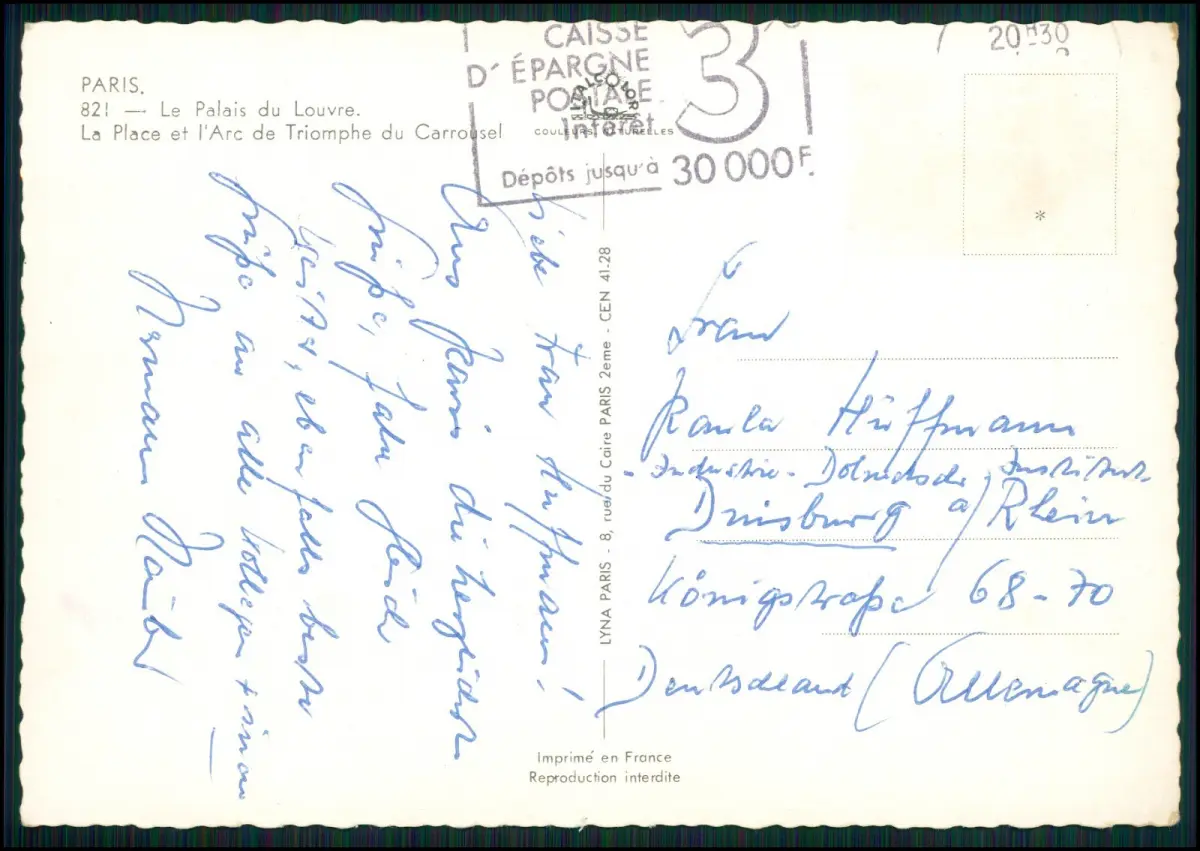 PARIS.
821 — Le Palais du Louvre.
La Place et l'Arc de Triomphe du Carrousel
CAISSE
D'ÉPARGNE
POSTALE
Intérêt
3
Dépôts jusqu'à 30 000 F.
20H30
ITALCOLOR
COULEURS NATURELLES
*
Liebe Frau Hüffmann!
Aus Paris die herzlichsten
Grüße, Ihre
ebenfalls beste
Grüße an alle Kollegen +
Hermann
LYNA PARIS - 8, rue du Caire PARIS 2eme - CEN 41-28
Frau
Paula Hüffmann
- Industrie - Dolmetsch. Institut -
Duisburg a/Rhein
Königstraße 68-70
Deutschland (Allemagne)
Imprimé en France
Reproduction interdite